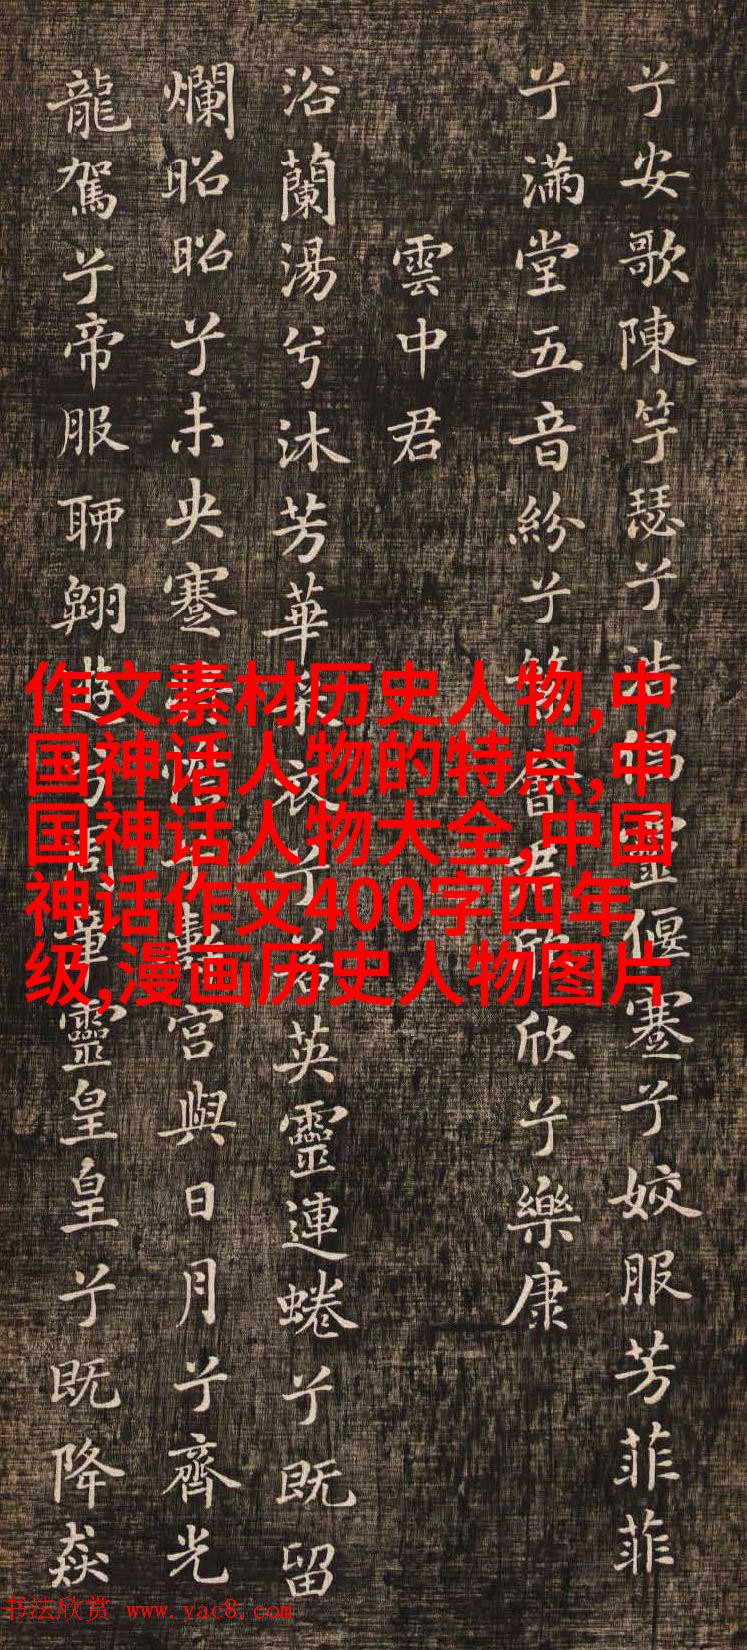 兮安歌陳竽瑟兮浩倡靈偃蹇兮姣服芳菲菲
兮滿堂五音紛兮繁會君欣欣兮樂康
雲中君
浴蘭湯兮沐芳華采衣兮若英靈連蜷兮既留
爛昭昭兮未央蹇憺兮壽宮與日月兮齊光
龍駕兮帝服聊翱遊兮周章靈皇皇兮既降猋
作文素材历史人物,中
国神话人物的特点,中
国神话人物大全,中国
神话作文400字四年
级,漫画历史人物图片
书法欣赏 www.yac8.com